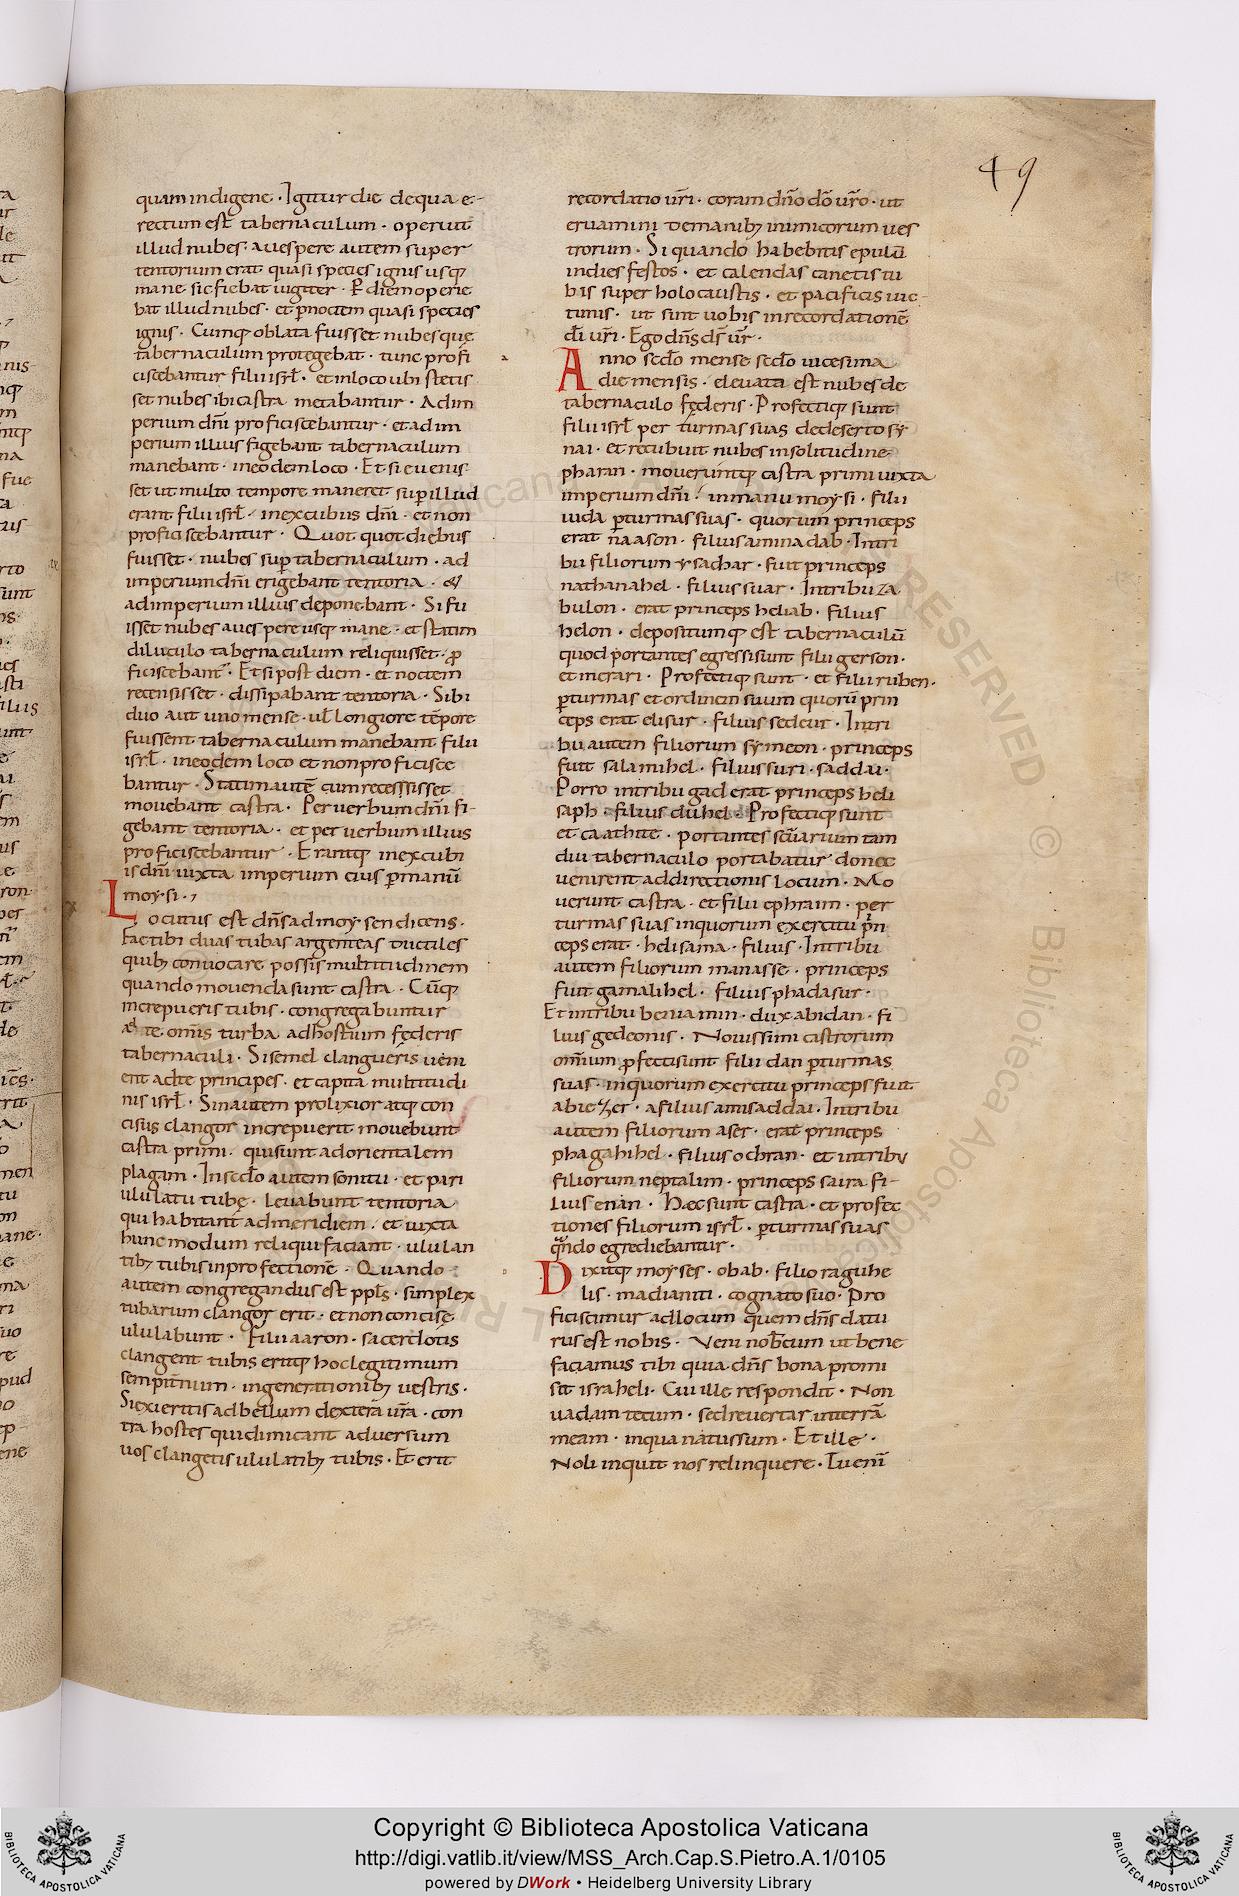 49
quam indigene · Igitur die de qua e-
rectum est tabernaculum · operuit
illud nubes · a uespere autem super
tentorium erat quasi species ignis usq;
mane sic fiebat iugiter · P diem operie
bat illud nubes · et p noctem quasi species
ignis · Cumq; oblata fuisset nubes que
tabernaculum protegebat · tunc profi
ciscebantur filii isrl · et in loco ubi stetis
set nubes ibi castra metabantur · Ad im
perium dni proficiscebantur · et ad im
perium illius figebant tabernaculum
manebant · in eodem loco · Et si euenis
set ut multo tempore maneret sup illud
erant filii isrl · in excubiis dni · et non
proficiscebantur · Quot quot diebus
fuisset · nubes sup tabernaculum · ad
imperium dni erigebant tentoria · &
ad imperium illius deponebant · Si fu
isset nubes a uespere usq; mane · et statim
diluculo tabernaculum reliquisset · p
ficiscebant · Et si post diem · et noctem
recensisset · dissipabant tentoria · Si bi
duo aut uno mense · ul longiore tepore
fuissent tabernaculum manebant filii
isrl · in eodem loco et non proficisce
bantur · Statim aute cum recesssisset
mouebant castra · Per uerbum dni fi-
gebant tentoria · et per uerbum illius
proficiscebantur · Erantq; in excubi
is dni iuxta imperium eius p manu
moysi ·
Locutus est dns ad moysen dicens ·
Fac tibi duas tubas argenteas ductiles
quib; conuocare possis multitudinem
quando mouenda sunt castra · Cuq;
increpueris tubis · congregabuntur
ad te omis turba ad hostium federis
tabernaculi · Si semel clangueris ueni
ent ad te principes · et capita multitudi
nis isrl · Sin autem prolixior atq; con
cisus clangor increpuerit mouebunt
castra primi · qui sunt ad orientalem
plagam · In secdo autem sonitu · et pari
ululatu tubę · leuabunt tentoria
qui habitant ad meridiem · et iuxta
hunc modum reliqui faciant · ululan
tib; tubis in profectione · Quando
autem congregandus est ppls · simplex
tubarum clangor erit · et non concise
ululabunt · Filii aaron · sacerdotis
clangent tubis eritq; hoc legitimum
sempitnum · in generationib; uestris ·
Si exieritis ad bellum de xtera ura · con
tra hostes qui dimicant aduersum
uos clangetis ululatib; tubis · Et erit
recordatio uri · coram dno do uro · ut
eruamini de manib; inimicorum ues
trorum · Si quando habebitis epulu
in dies festos · et calendas canetis tu
bis super holocaustis · et pacificis uic-
timis · ut sint uobis in recordatione
di uri · Ego dns ds ur ·
Anno secdo mense secdo uicesima
die mensis · eleuata est nubes de
tabernaculo federis · Profectiq; sunt
filii isrl per turmas suas de deserto sy
nai · et recubuit nubes in solitudine
pharan · moueruntq; castra primi iuxta
imperium dni · in manu moysi · filii
iuda p turmas suas · quorum princeps
erat naason · filius aminadab · In tri
bu filiorum ysachar · fuit princeps
nathanahel · filius suar · In tribu za
bulon · erat princeps heliab · filius
helon · depositumq; est tabernaculu
quod portantes egsessi sunt filii gerson ·
et merari · Profectiq; sunt · et filii ruben ·
p turmas et ordinem suum quoru prin
ceps erat elisur · filius sedeur · In tri
bu autem filiorum symeon · princeps
fuit salamihel · filius suri · saddai ·
Porro in tribu gad erat princeps heli
saph · filius duhel · Profectiq; sunt
et caathite · portantes scuarium tam
diu tabernaculo portabatur donec
uenirent ad directionis locum · Mo
uerunt castra · et filii ephraim · per
turmas suas in quorum exercitu prin
ceps erat · helisama · filius · In tribu
autem filiorum manasse · princeps
fuit gamalihel · filius phadasur ·
Et in tribu beniamin · dux abidan · fi
lius gedeonis · Nouissimi castrorum
omium pfecti sunt filii dan p turmas
suas · in quorum exercitu princeps fuit
abiezer · a filius amisaddai · In tribu
autem filiorum aser · erat princeps
phagahihel · filius ochran · et in tribu
filiorum neptalim · princeps saira fi-
lius enan · Hec sunt castra · et profec
tiones filiorum isrl · p turmas suas
qndo egrediebantur ·
Dixitq; moyses · obab · filio raguhe
lis · madianiti · cognato suo · Pro
ficiscimur ad locum quem dns datu
rus est nobis · Veni nobcum ut bene
faciamus tibi quia dns bona promi
sit israheli · Cui ille respondit · Non
uadam tecum · sed reuertar in terra
meam · in qua natus sum · Et ille ·
Noli inquit nos relinquere · Tu eni
Copyright © Biblioteca Apostolica Vaticana
http://digi.vatlib.it/view/MSS_Arch.Cap.S.Pietro.A.1/0105
powered by DWork • Heidelberg University Library